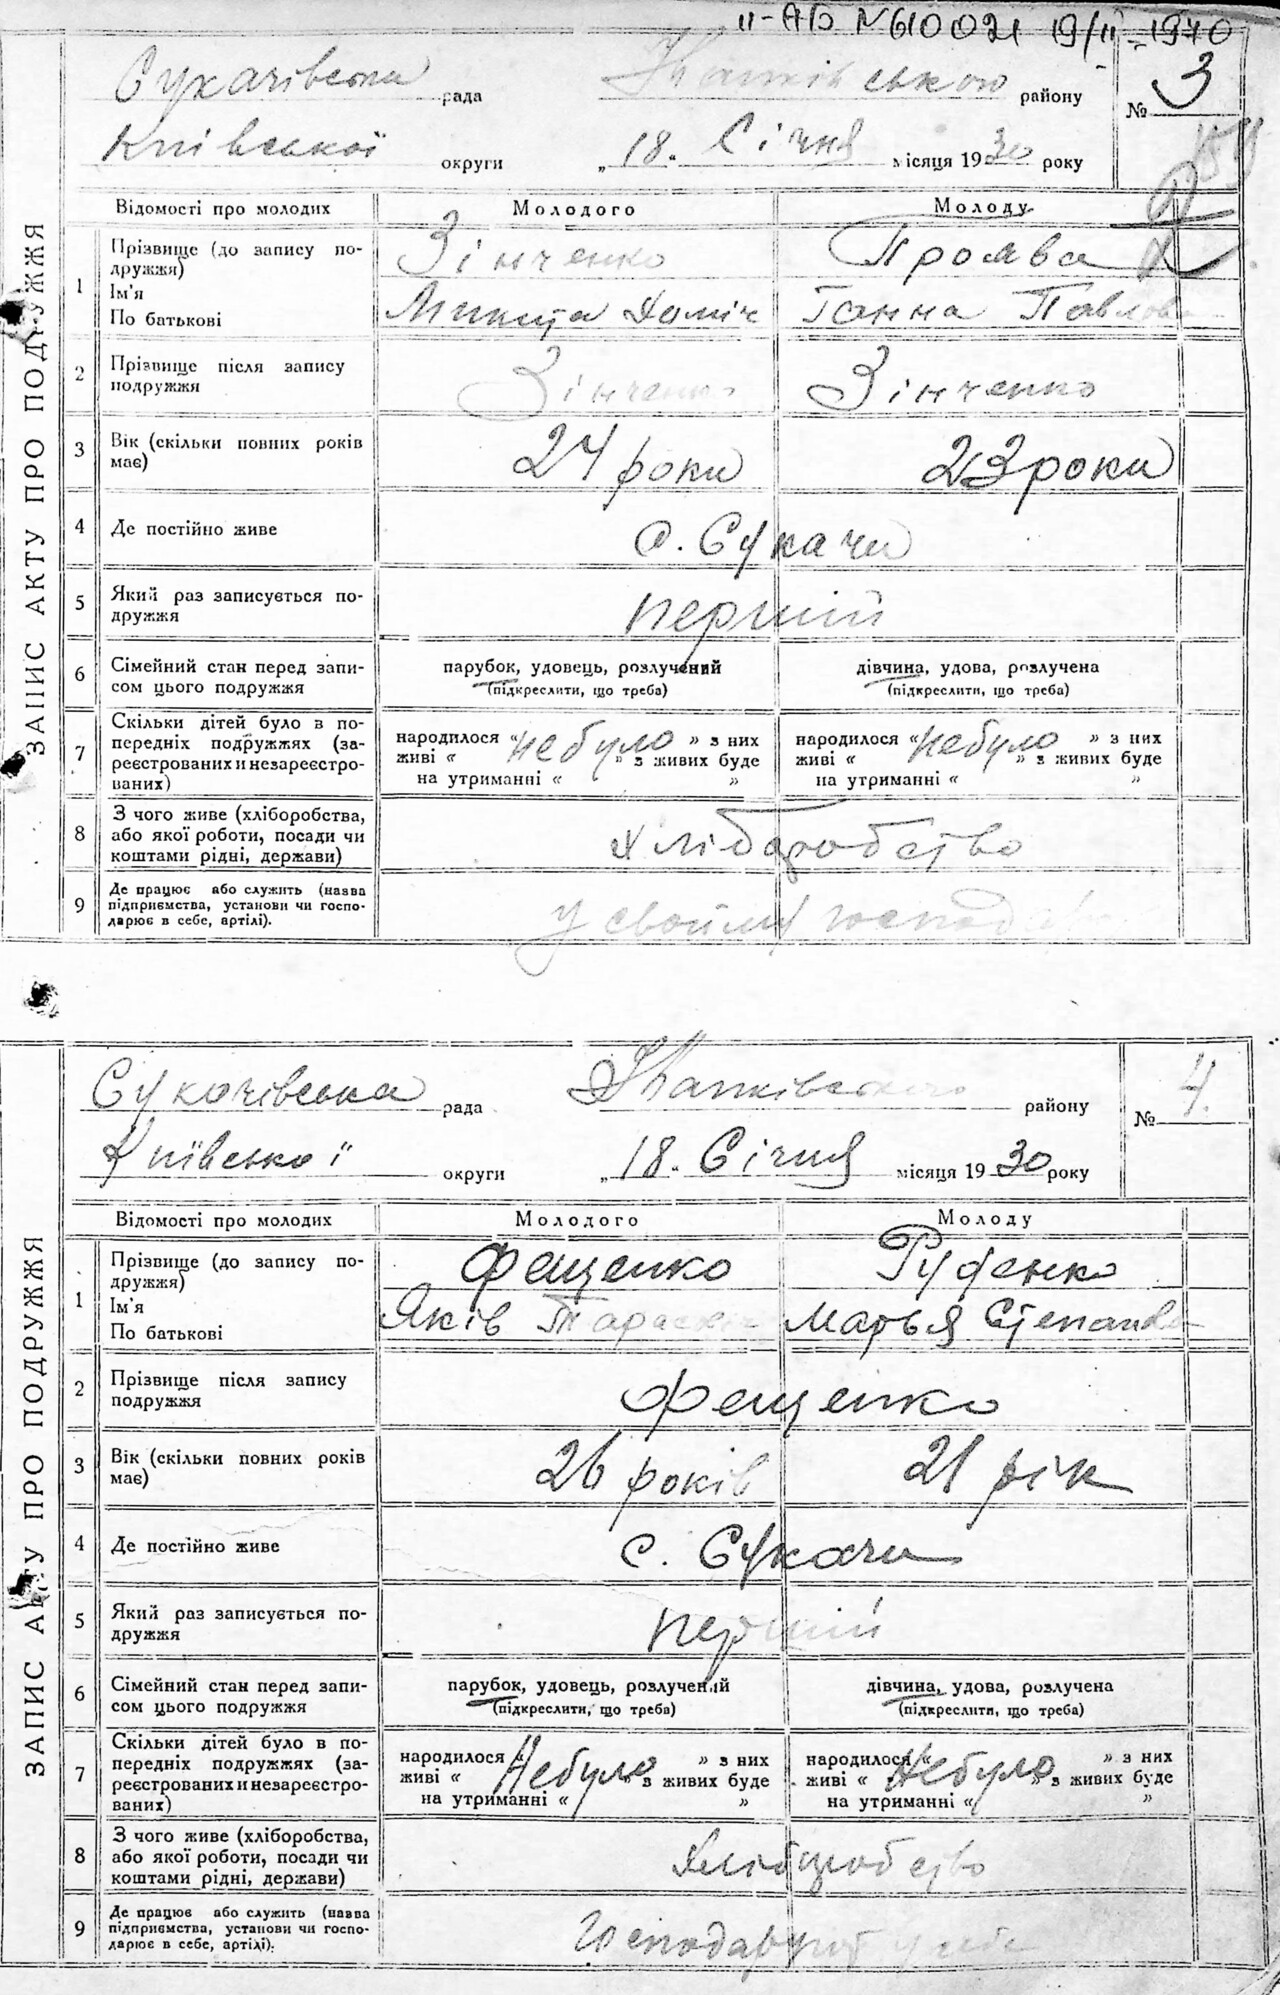 ІІ-АБ №610021 19/ІІ-1970
Сукачівська рада Іванківського району № 3
Київської округи „ 18 “ Січня місяця 1930 року
ЗАПИС АКТУ ПРО ПОДРУЖЖЯ
Відомості про молодих Молодого Молоду
1 Прізвище (до запису по-
дружжя) Зінченко Проява
Ім'я
По батькові Микита Ганна Павлова
2 Прізвище після запису
подружжя Зінченко Зінченко
3 Вік (скільки повних років
має) 24 роки 23 роки
4 Де постійно живе с. Сукачи
5 Який раз записується по-
дружжя перший
6 Сімейний стан перед запи-
сом цього подружжя
парубок, удовець, розлучений дівчина, удова, розлучена
(підкреслити, що треба) (підкреслити, що треба)
7 Скільки дітей було в по-
передніх подружжях (за-
реєстрованих и незареєстро-
ваних)
народилося « небуло » з них народилося « небуло » з них
живі « » з живих буде живі « » з живих буде
на утриманні « » на утриманні « »
8 З чого живе (хліборобства,
або якої роботи, посади чи
коштами рідні, держави) хліборобство
9 Де працює або служить (назва
підприємства, установи чи госпо-
дарює в себе, артілі). у своїму
Сукачівська рада Іванківського району № 4.
Київської округи „ 18 “ Січня місяця 1930 року
ЗАПИС АКТУ ПРО ПОДРУЖЖЯ
Відомості про молодих Молодого Молоду
1 Прізвище (до запису по-
дружжя) Фещенко Руденко
Ім'я
По батькові Яків Тарасович Марья Степанова
2 Прізвище після запису
подружжя Фещенко
3 Вік (скільки повних років
має) 26 років 21 рік
4 Де постійно живе с. Сукачи
5 Який раз записується по-
дружжя перший
6 Сімейний стан перед запи-
сом цього подружжя
парубок, удовець, розлучений дівчина, удова, розлучена
(підкреслити, що треба) (підкреслити, що треба)
7 Скільки дітей було в по-
передніх подружжях (за-
реєстрованих и незареєстро-
ваних)
народилося « Небуло » з них народилося « Небуло » з них
живі « » з живих буде живі « » з живих буде
на утриманні « » на утриманні « »
8 З чого живе (хліборобства,
або якої роботи, посади чи
коштами рідні, держави) Хліборобство
9 Де працює або служить (назва
підприємства, установи чи госпо-
дарює в себе, артілі). у себе